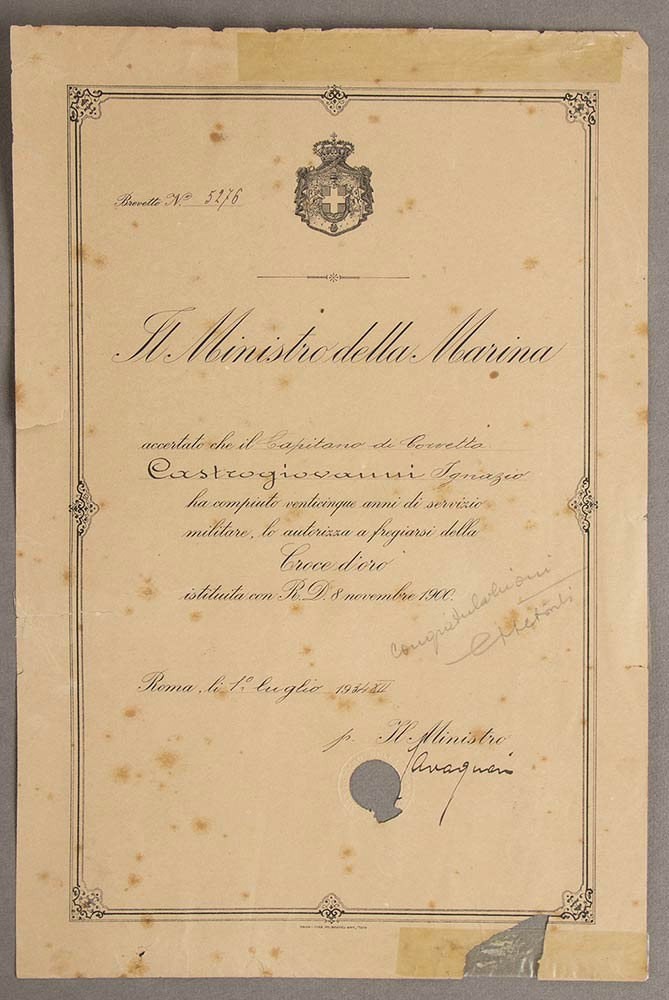 Brevetto N.° 5276
Il Ministro della Marina
accertato che il Capitano di Corvetta
Castrogiovanni Ignazio
ha compiuto venticinque anni di servizio
militare, lo autorizza a fregiarsi della
Croce d'oro
istituita con R. D. 8 novembre 1900.
congratulazioni
Roma, li 1° luglio 1934 XII
p. Il Ministro